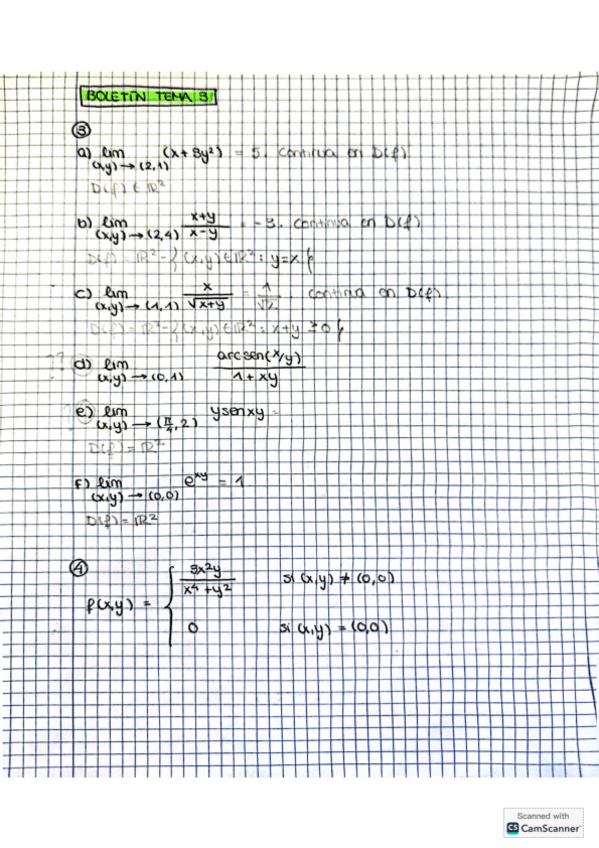 BOLETÍN TEMA 3
③
a) lim (x,y)→(2,1) (x+3y²) = 5. Continua en D(f)
D(f) ∈ ℝ²
b) lim (x,y)→(2,4) (x+y)/(x-y) = -3. Continua en D(f)
D(f) = ℝ² - {(x,y) ∈ ℝ² : y=x}
c) lim (x,y)→(1,1) x/√(x+y) = 1/√2. Continua en D(f).
D(f) = ℝ² - {(x,y) ∈ ℝ² : x+y ≥ 0}
d) lim (x,y)→(0,1) arcsen(x/y)/(1+xy)
e) lim (x,y)→(π/4,2) ysenxy =
D(f) = ℝ²
f) lim (x,y)→(0,0) e^xy = 1
D(f) = ℝ²
④
f(x,y) = { 3x²y/(x⁴+y²) si (x,y) ≠ (0,0)
0 si (x,y) = (0,0)
Scanned with
CS CamScanner